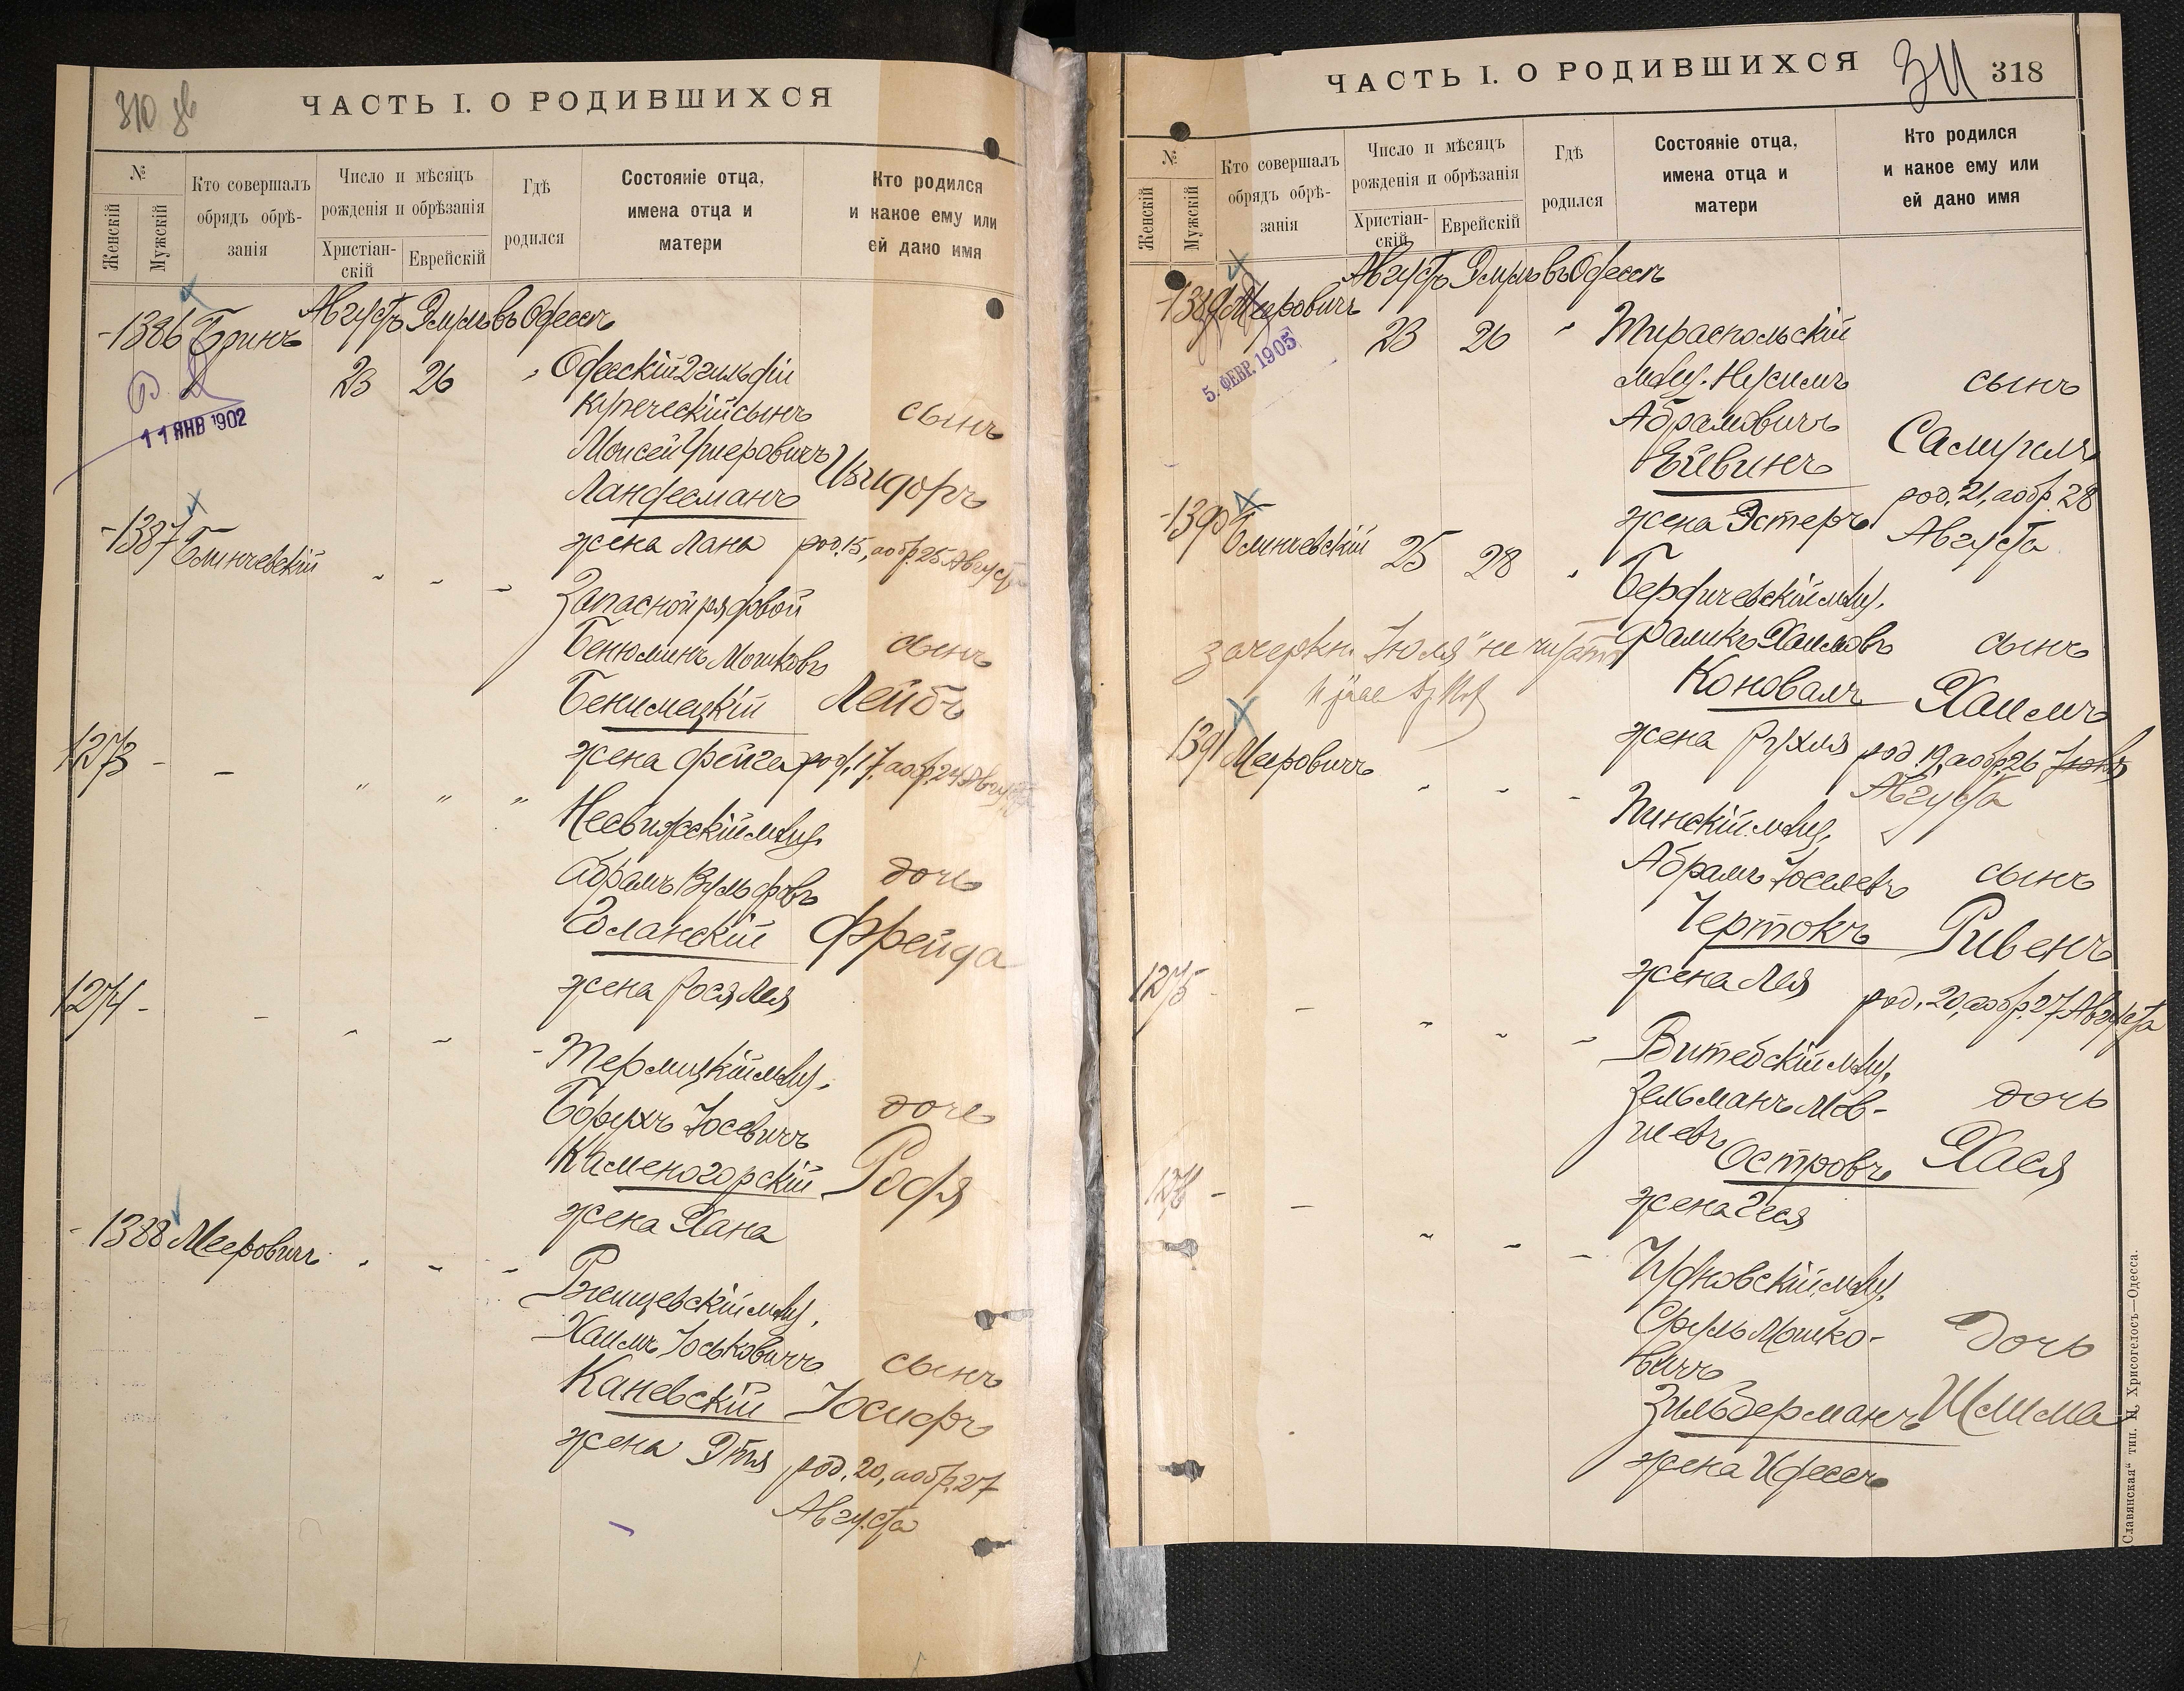 310 об
ЧАСТЬ I. О РОДИВШИХСЯ
№
Женскій
Мужскій
Кто совершалъ обрядъ обрѣ-занія
Число и мѣсяцъ рожденія и обрѣзанія
Христіан-скій
Еврейскій
Гдѣ родился
Состояніе отца, имена отца и матери
Кто родился и какое ему или ей дано имя
Августъ Элулъ въ Одессѣ
1386 Бринъ
23 26 " Одесскій 2 гильдіи
купеческій сынъ сынъ
11 ЯНВ 1902
Моисей Умеровичъ Изидоръ
Ландесманъ
жена Лана род. 15, а обр. 25 Августа
1387 Блинчевскій
Запасной рядовой
Бенюминъ Мошковъ сынъ
Бенимецкій Лейбъ
жена Фейга род. 17, а обр. 24 Августа
1273
Несвижскій мѣщ.
Абрамъ Вульфовъ дочь
Голанскій Фрейда
жена Рося Лея
1274
Термицкій мѣщ.
Борухъ Іосевичъ дочь
Каменогорскій Родя
жена Хана
1388 Мееровичъ
Ржищевскій мѣщ.
Хаимъ Іоськовичъ сынъ
Каневскій Іосифъ
жена Этя род. 20, а обр. 27
Августа
ЧАСТЬ I. О РОДИВШИХСЯ
311 318
№
Женскій
Мужскій
Кто совершалъ обрядъ обрѣ-занія
Число и мѣсяцъ рожденія и обрѣзанія
Христіан-скій
Еврейскій
Гдѣ родился
Состояніе отца, имена отца и матери
Кто родился и какое ему или ей дано имя
Августъ Элулъ въ Одессѣ
1389 Мееровичъ
23 26 " Тираспольскій
5. ФЕВР. 1905
мѣщ. Нусимъ сынъ
Абрамовичъ Самуилъ
Ейвинъ род. 21, а обр. 28
жена Эстеръ Августа
1390 Блинчевскій 25 28 "
Бердичевскій мѣщ.
зачеркн. "Іюля" не читать
Фамикъ Хаимовъ сынъ
Коновалъ Хаимъ
жена Рухля род. 19, а обр. 26 Іюля
Августа
1391 Мееровичъ
Пинскій мѣщ.
Абрамъ Іоселевъ сынъ
Чертокъ Рувенъ
жена Лея род. 20, а обр. 27 Августа
1275
Витебскій мѣщ.
Зельманъ Мов-
шевъ дочь
Островъ Хася
жена Геся
1276
Чудновскій мѣщ.
Сруль Мошко-
вичъ дочь
Зильберманъ Шлима
жена Идесъ
Славянская" тип. Н. Хрисогелосъ—Одесса.